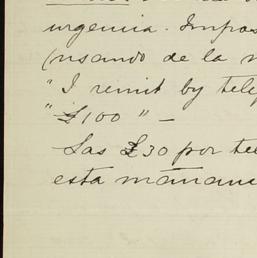 urgencia. Impos
(usando de la
"I remit by tele
"£100" —
Las £30 por tel
esta mañana